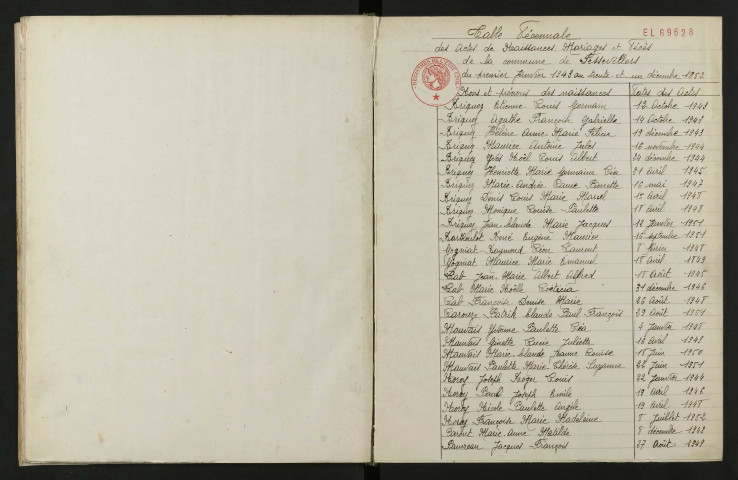 Table Décennale
EL 69628
des actes de Naissances Mariages et Décès
de la commune de Fessevillers
du premier Janvier 1943 au trente et un décembre 1952
Noms et prénoms des naissances Dates des Actes
Briquez Etienne Louis Germain 12 Octobre 1943
Briquez Agathe Françoise Gabrielle 14 Octobre 1943
Briquez Hélène Anne-Marie Félicie 19 décembre 1943
Briquez Maurice Antoine Jules 16 novembre 1944
Briquez Yves Noël Louis Albert 24 décembre 1944
Briquez Henriette Marie Germaine Léa 21 Avril 1945
Briquez Marie-Andrée Laure Pierrette 16 mai 1947
Briquez Denis Louis Marie Marcel 15 avril 1948
Briquez Monique Louise-Paulette 18 avril 1948
Briquez Jean-Claude Marie Jacques 12 Janvier 1951
René Eugène Maurice 15 septembre 1951
Gogniat Raymond Léon Laurent 8 février 1948
Gogniat Maurice Marie Emanuel 18 Avril 1949
Lab Jean-Marie Albert Alfred 18 Août 1945
Lab Marie Noëlle 31 décembre 1946
Lab Françoise Denise Marie 26 Août 1948
Patrik Claude Paul François 29 Août 1951
Mauvais Yvonne Paulette Léa 4 Janvier 1945
Mauvais Ginette Lucie Juliette 16 Avril 1949
Mauvais Marie Claude Jeanne Louise 15 Juin 1950
Mauvais Paulette Marie-Thérèse Suzanne 22 Juin 1951
Joseph Roger Louis 22 Janvier 1944
Paul Joseph Emile 19 Avril 1946
Nicole Paulette Angèle 19 Avril 1948
Françoise Marie Madeleine 5 Juillet 1952
Parent Marie-Anne Matilde 8 décembre 1949
Jacques-François 27 Août 1949